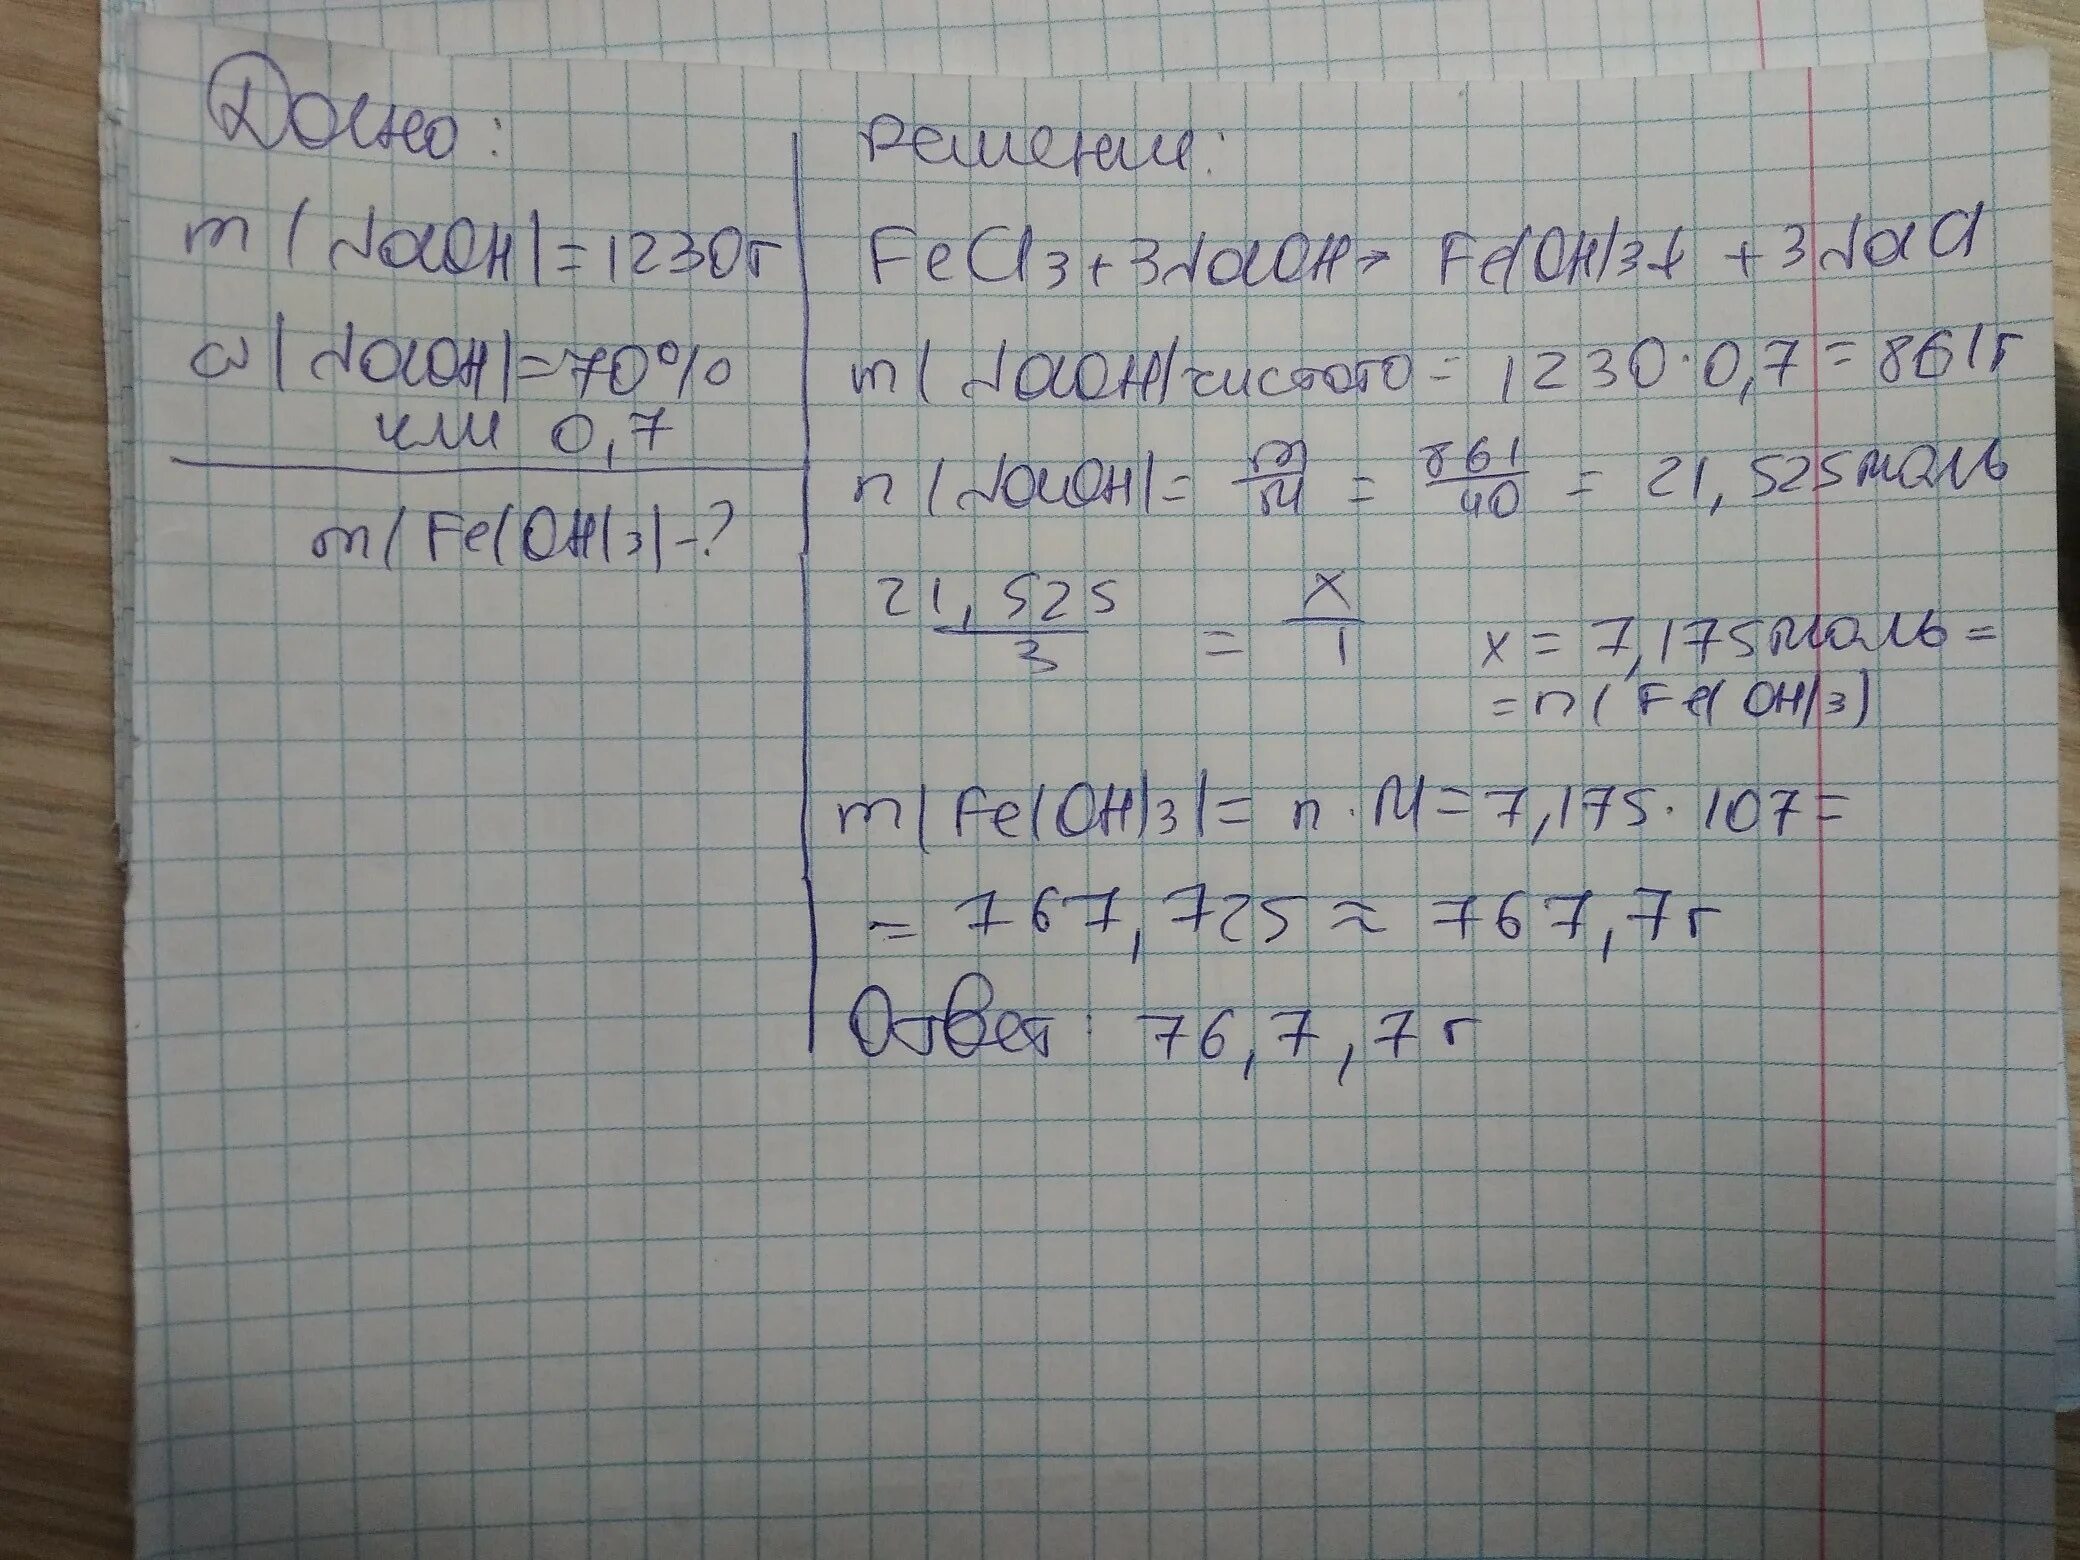 Дано:
m(NaOH)=1230г
ω(NaOH)=70%
или 0,7
m(Fe(OH)3)-?
Решение:
FeCl3+3NaOH→ Fe(OH)3↓ +3NaCl
m(NaOH)чистого = 1230·0,7=861г
n(NaOH)= m/M = 861/40 = 21,525моль
21,525/3 = x/1 x=7,175моль=
=n(Fe(OH)3)
m(Fe(OH)3)= n·M=7,175·107=
=767,725≈767,7г
Ответ: 76,7,7г